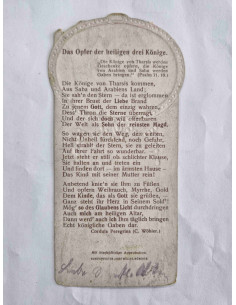 Das Opfer der heiligen drei Könige.
„Die Könige von Tharsis werden
Geschenke opfern, die Könige
von Arabien und Saba werden
Gaben bringen.“ (Psalm
Die Könige von Tharsis kommen,
Aus Saba und Arabiens Land;
So sah'n den Stern — da ist erglommen
In ihrer Brust der Liebe Brand
Zu jenem Gott, dem einzig wahren,
Dess' Thron die Sterne überragt,
Und der sich
Der Welt als Sohn der reinsten Magd.
So wagten sie den Weg, den weiten,
Nicht Unbill fürchtend, noch Gefahr,
Hell strahlt' der Stern, sie zu geleiten
Auf ihrer Fahrt so wunderbar. —
Jetzt steht er still ob schlichter Klause,
Sie halten an und treten ein
Und finden dort — im ärmsten Hause —
Das Kind mit seiner Mutter rein!
Anbetend knie'n sie ihm zu Füßen
Und opfern Weihrauch, Myrrhe, Gold
Dem Kinde, das als Gott sie grüßen,
Gesenkt das Herz in Seinem Sold!
Mög' so des Glaubens Licht durchdringen
Auch mich am heiligen Altar,
Dann werd' auch ich Ihm täglich bringen
Echt königliche Gaben dar.
Cordula Peregrina (C. Wöhler.)